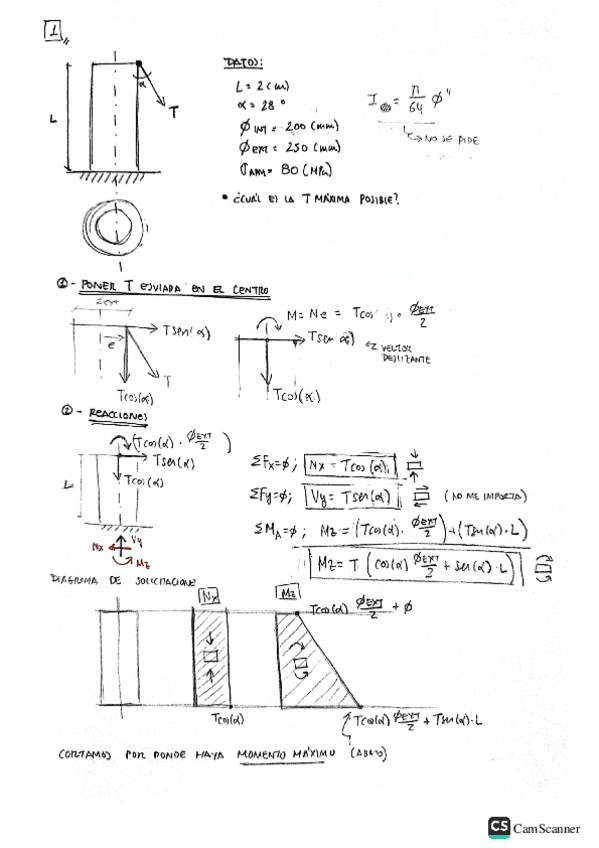 1
L
α
T
DATOS:
L = 2 (m)
α = 28 °
Ø INT = 200 (mm)
Ø EXT = 250 (mm)
σADM = 80 (MPa)
I = π/64 Ø⁴
↳ NO SE PIDE
• ¿CUÁL ES LA T MÁXIMA POSIBLE?
① - PONER T ESVIADA EN EL CENTRO
Øext
e
T sen(α)
T
Tcos(α)
M = N e = Tcos · ØEXT/2
T sen
VECTOR DESLIZANTE
Tcos(α)
② - REACCIONES
(Tcos(α) · ØEXT/2)
T sen(α)
Tcos(α)
L
Nx
Vy
Mz
ΣFx=Ø; Nx = Tcos(α)
ΣFy=Ø; Vy = Tsen(α) (NO ME IMPORTA)
ΣMA=Ø; Mz = (Tcos(α) · ØEXT/2) + (Tsen(α) · L)
Mz = T (cos(α) ØEXT/2 + sen(α) · L)
DIAGRAMA DE SOLICITACIONE
Nx
Mz
Tcos(α) ØEXT/2 + Ø
Tcos(α)
Tcos(α) ØEXT/2 + Tsen(α) · L
CORTAMOS POR DONDE HAYA MOMENTO MÁXIMO (ABAJO)
CS CamScanner